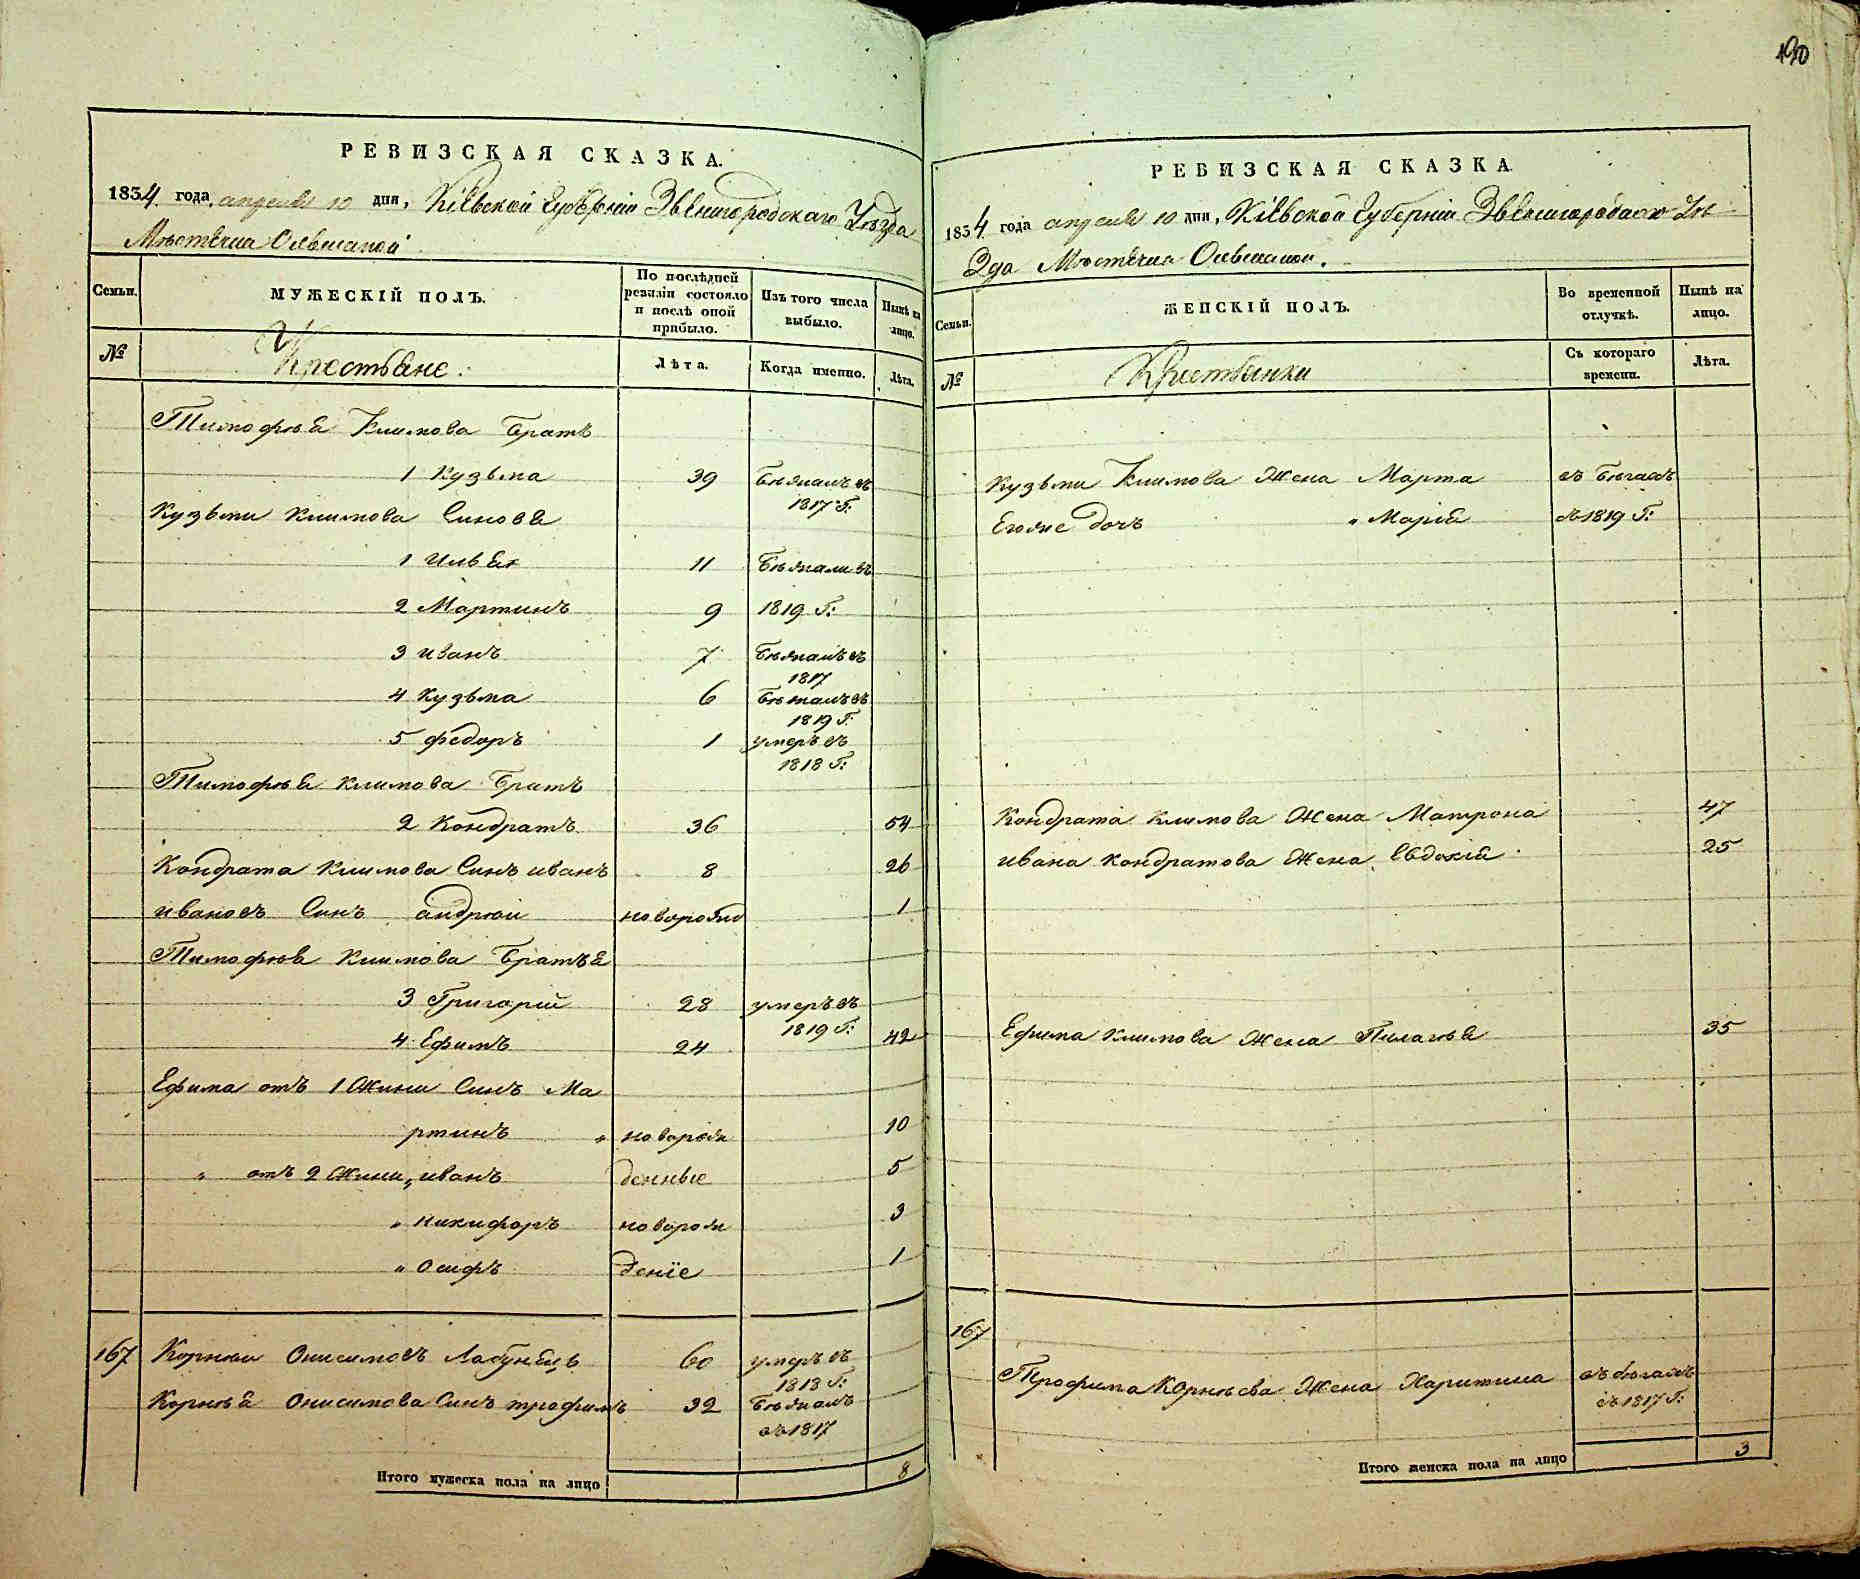 190
РЕВИЗСКАЯ СКАЗКА.
1834 года, апреля 10 дня, Кіевской Губерніи Звенигородскаго Уѣзда
Мѣстечка Ольшаной
Семьи.
МУЖЕСКІЙ ПОЛЪ.
По послѣдней ревизіи состояло и послѣ оной прибыло.
Изъ того числа выбыло.
Нынѣ на лицо.
№
Крестьяне.
Лѣта.
Когда именно.
Лѣта.
Тимофѣя Климова Братъ
1 Кузьма 39 Бѣжалъ въ 1817 Г:
Кузьми Климова Синовя
1 Илья 11 Бѣжали въ
2 Мартинъ 9 1819 Г:
3 иванъ 7 Бѣжалъ въ 1817
4 Кузьма 6 Бѣжалъ въ 1819 Г:
5 федоръ 1 умеръ въ 1818 Г:
Тимофѣя Климова Братъ
2 Кондратъ 36 54
Кондрата Климова Синъ иванъ 8 26
ивановъ Синъ андрѣй новорожд 1
Тимофѣя Климова Братья
3 Григорій 28 умеръ въ 1819 Г:
4 Ефимъ 24 42
Ефима отъ 1 Жини Синъ Ма
ртинъ " новорож 10
" отъ 2 Жини, иванъ денные 5
" никифоръ новорож 3
" Осифъ деніе 1
167 Корнѣй Онисимовъ Лабунецъ 60 умеръ въ 1818 Г:
Корнѣя Онисимова Синъ трофимъ 32 Бѣжалъ въ 1817
Итого мужеска пола на лицо 8
РЕВИЗСКАЯ СКАЗКА
1834 года апреля 10 дня, Кіевской Губерніи Звенигородскаго Уѣ
Зда Мѣстечка Ольшаной.
Семьи.
ЖЕНСКІЙ ПОЛЪ.
Во временной отлучкѣ.
Нынѣ на лицо.
№
Крестьянки
Съ котораго времени.
Лѣта.
Кузьми Климова Жена Марта въ Бѣгахъ
Егоже дочь " Марія съ 1819 Г:
Кондрата Климова Жена Матрона 47
ивана Кондратова Жена Евдокія 25
Ефима Климова Жена Пилагѣя 35
167
Трофима Корнѣева Жена Харитина въ бѣгахъ съ 1817 Г:
Итого женска пола на лицо 3